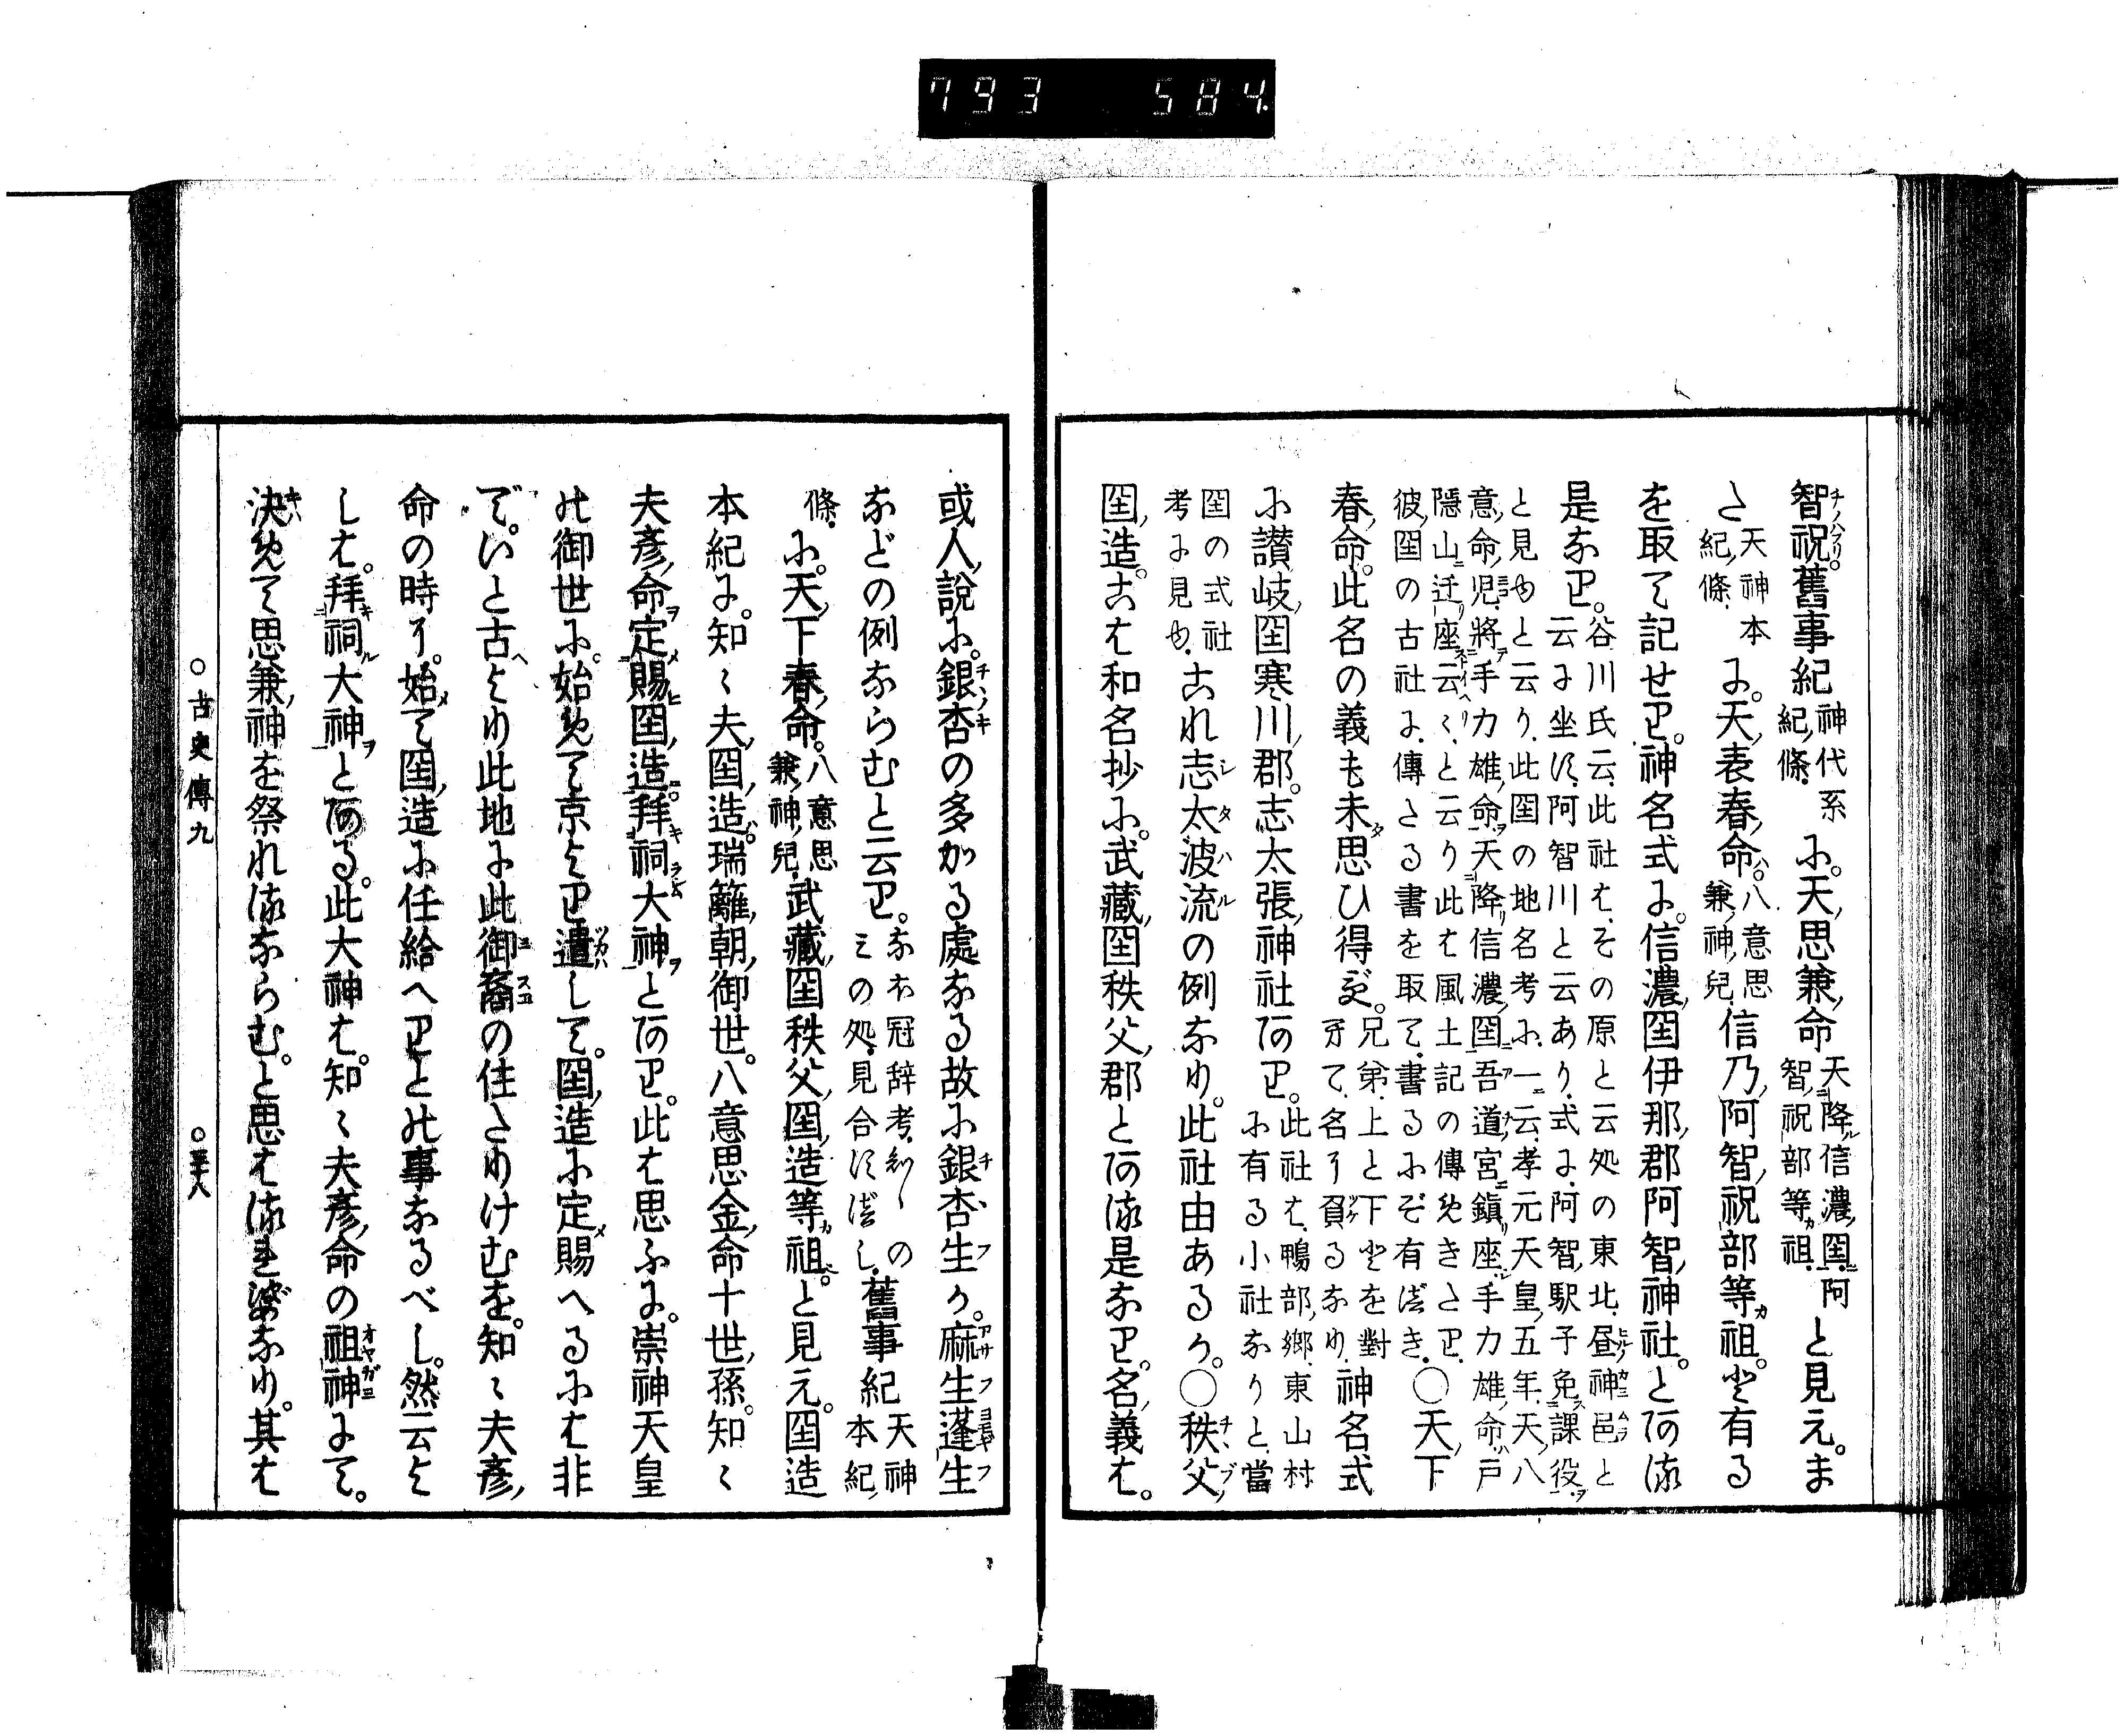 793 584
智祝。舊事紀 神代系紀條 に。天思兼命 天降信濃国阿智祝部等祖 と見え。ま
た 天神本紀條 に。天表春命。 八意思兼神兒 信乃阿智祝部等祖。と有る
を取て記せり。神名式に。信濃国伊那郡阿智神社。とある
是なり。 谷川氏云此社はその原と云処の東北昼神邑と
云に坐す阿智川と云あり式に阿智駅子免課役
と見ゆと云り此国の地名考に一云孝元天皇五年天八
意命児將手力雄命天降信濃国吾道宮鎮座手力雄命戸
隠山迁座云々と云り此は風土記の傳めきたり
彼国の古社に傳たる書を取て書るにぞ有べき ○天下
春命。此名の義も未思ひ得ず。 兄弟上と下とを對
て名に負るなり 神名式
に讃岐国寒川郡。志太張神社あり。 此社は鴨部郷東山村
に有る小社なりと當
国の式社
考に見ゆ これ志太波流の例なり。此社由あるか。○秩父
国造。こは和名抄に。武藏国秩父郡とある是なり。名義は。
或人說に。銀杏の多かる處なる故に銀杏生か。麻生蓬生
などの例ならむと云り。 なほ冠辞考の
この処見合すべし 舊事紀 天神
本紀
條 に。天下春命。 八意思
兼神兒 武藏国秩父国造等祖。と見え。国造
本紀に。知々夫国造。瑞籬朝御世。八意思金命十世孫。知々
夫彥命定賜国造。拜祠大神とあり。此は思ふに。崇神天皇
の御世に。始めて京より遣して。国造に定賜へるには非
で。いと古より此地に此御裔の住たりけむを。知々夫彥
命の時に。始て国造に任給へりとの事なるべし。然云よ
しは。拜祠大神とある。此大神は。知々夫彥命の祖神にて。
決めて思兼神を祭れるならむ。と思はるればなり。其は
○古史傳九 ○三十八